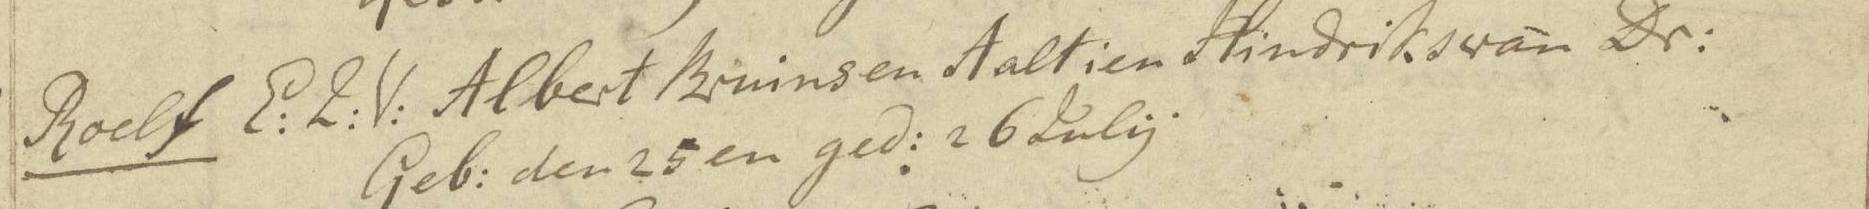 Roelf E: Z: V: Albert Bruins en Aaltien Hindriks van Dr:
Geb: den 25 en ged: 26 Julij